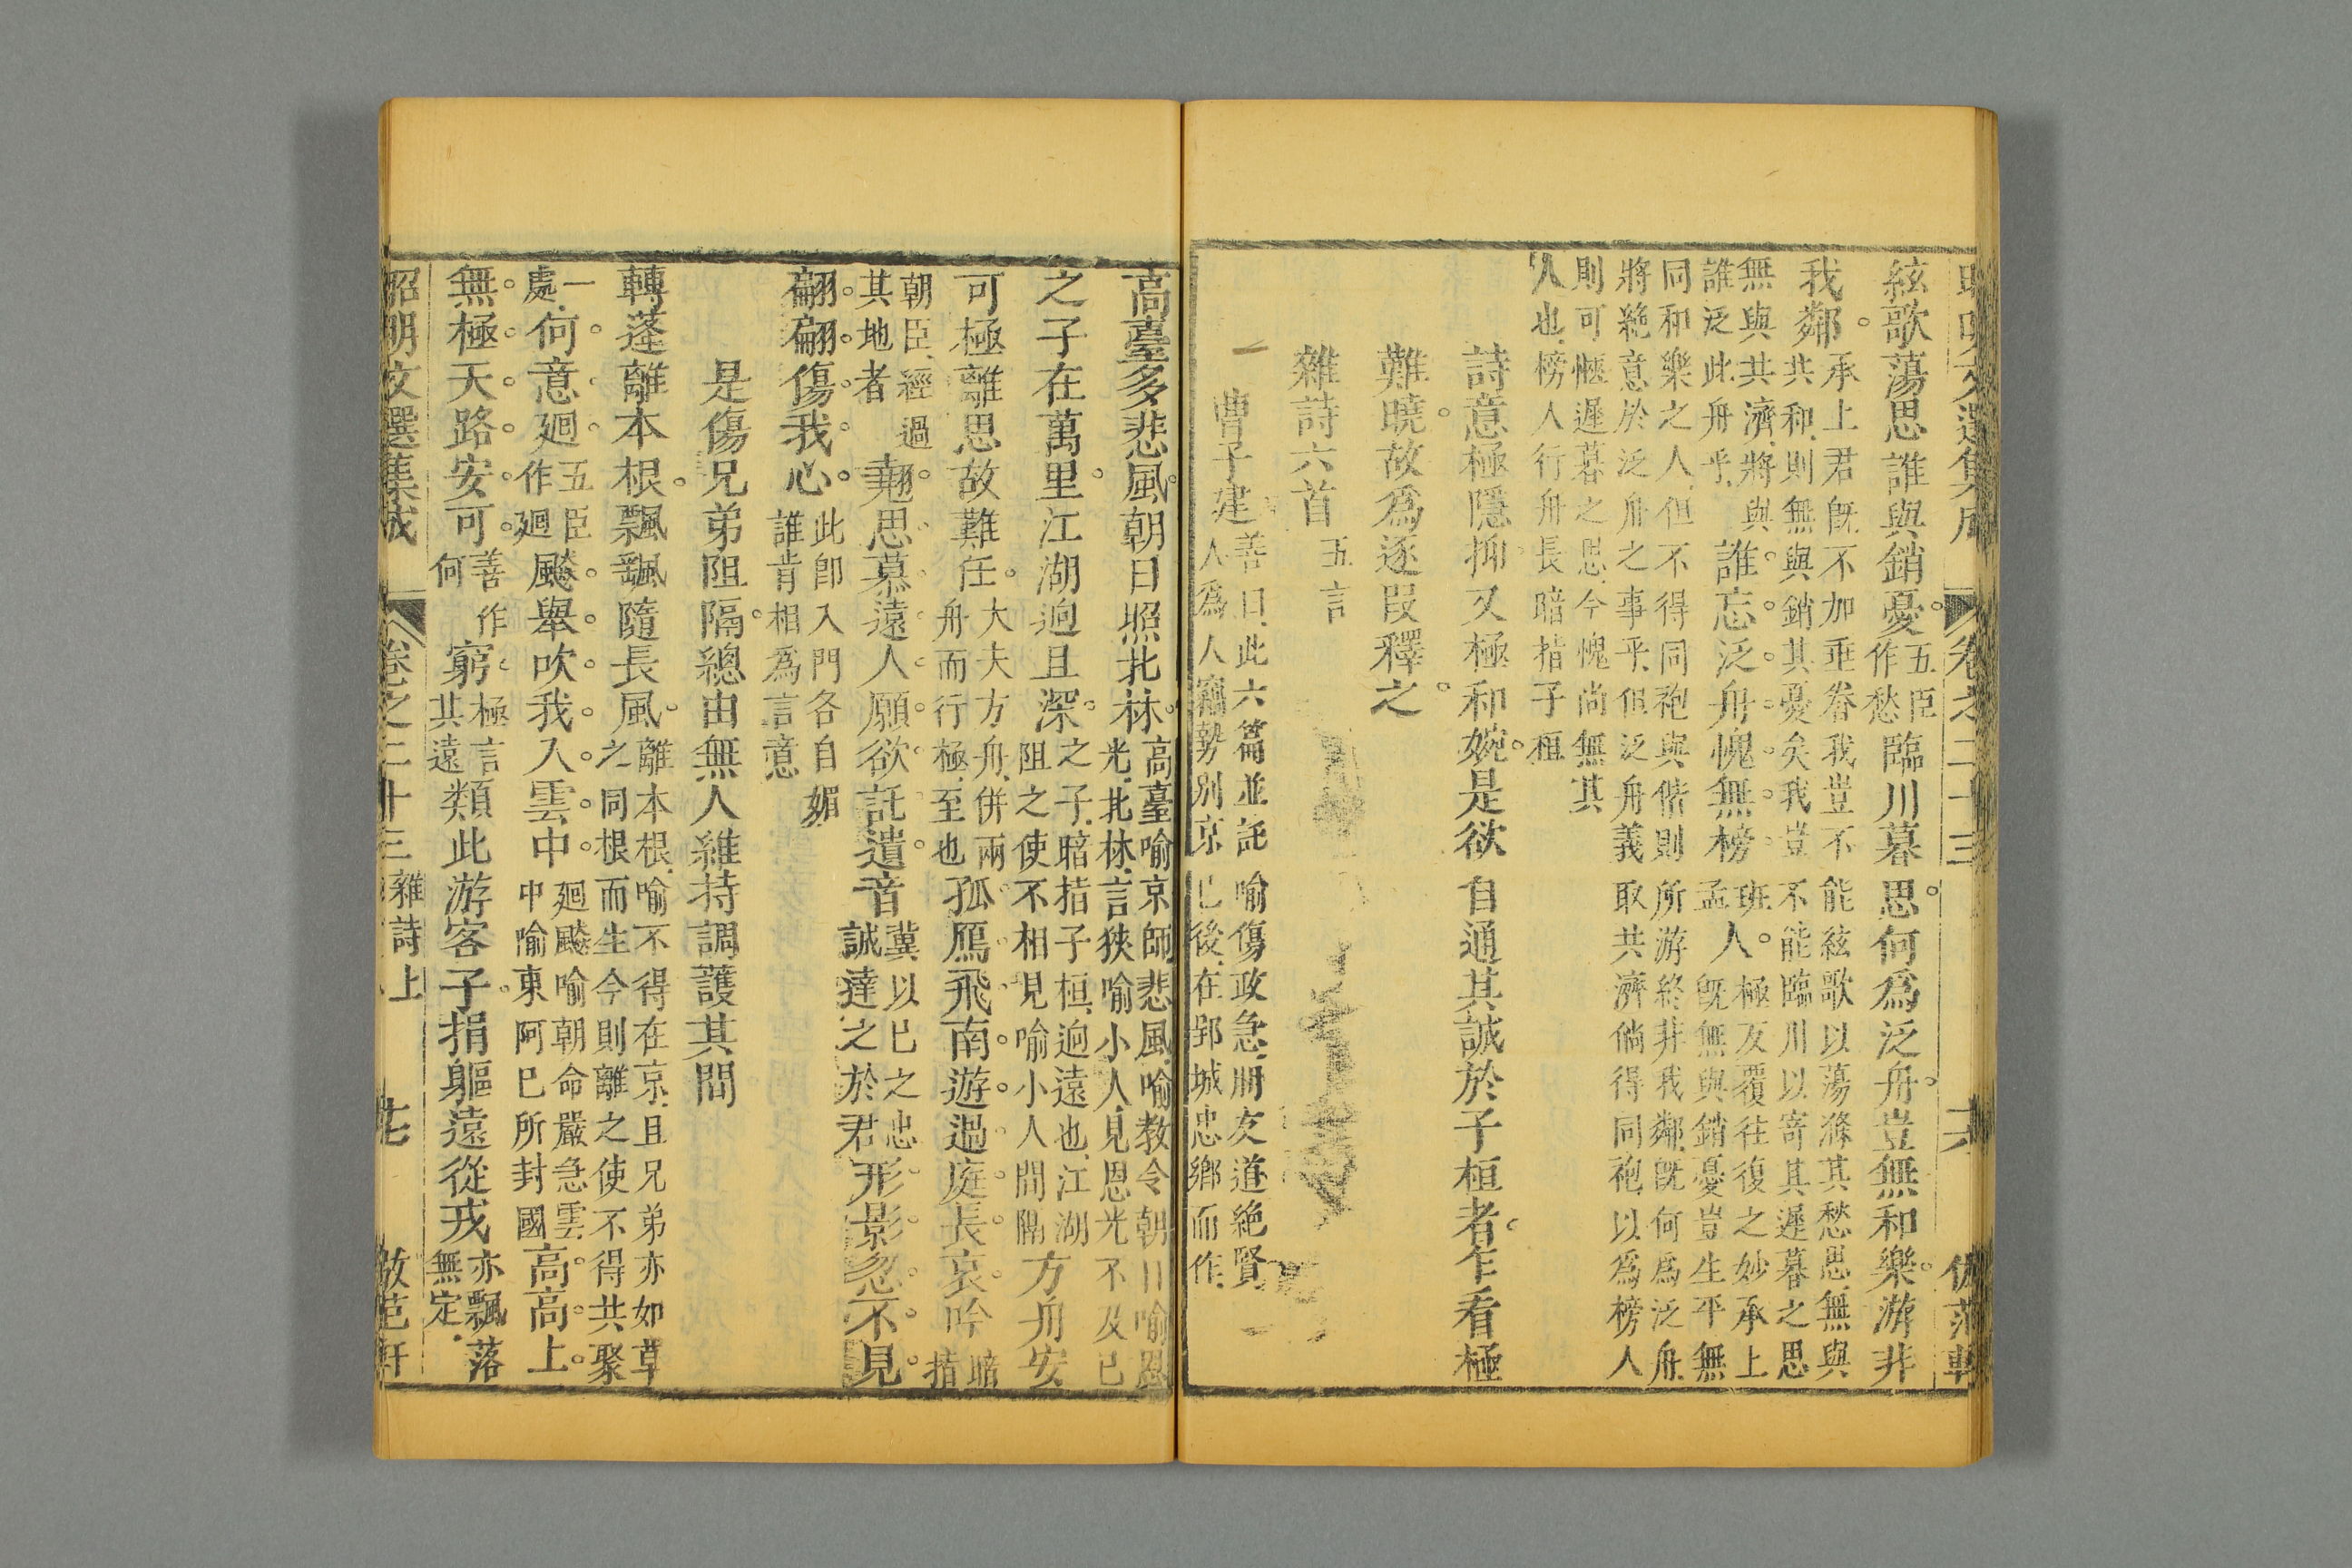 絃歌蕩思誰與銷憂五臣作愁臨川暮思何爲泛舟豈無和樂游非
我鄰承上君旣不加垂眷我豈不能絃歌以蕩滌其愁思無與
共和則無與銷其憂矣我豈不能臨川以寄其遲暮之思
無與共濟將與
誰泛此舟乎誰忘泛舟愧無榜班孟人極反覆往復之妙承上
旣無與銷憂豈生平無
同和樂之人但不得同袍與偕則所游終非我鄰旣何爲泛舟
將絶意於泛舟之事乎但泛舟義取共濟倘得同袍以爲榜人
則可愜遲暮之思今愧尚無其
人也榜人行舟長暗指子桓
詩意極隱抑又極和婉是欲自通其誠於子桓者乍看極
難曉故爲逐段釋之
雜詩六首五言
曹子建善曰此六篇並託喻傷政急朋友道絶賢
人爲人竊勢別京已後在郢城忠鄉而作
高臺多悲風朝日照北林高臺喻京師悲風喻教令朝日喻恩
光北林言狹喻小人見恩光不及已
之子在萬里江湖逈且深之子暗指子桓逈遠也江湖
阻之使不相見喻小人間隔方舟安
可極離思故難任大夫方舟併兩
舟而行極至也孤鴈飛南遊過庭長哀吟暗
指
朝臣經過
其地者翹思慕遠人願欲託遺音冀以已之忠
誠達之於君形影忽不見
翩翩傷我心此卽入門各自媚
誰肯相爲言意
是傷兄弟阻隔總由無人維持調護其間
轉蓬離本根飄颻隨長風離本根喻不得在京且兄弟亦如草
之同根而生今則離之使不得共聚
一
處何意廻五臣作廻飇舉吹我入雲中廻飇喻朝命嚴急雲
中喻東阿已所封國高高上
無極天路安可善作何窮極言
其遠類此游客子捐軀遠從戎亦飄落
無定
昭明文選集成 卷之二十三 雜詩上 七 倣范軒